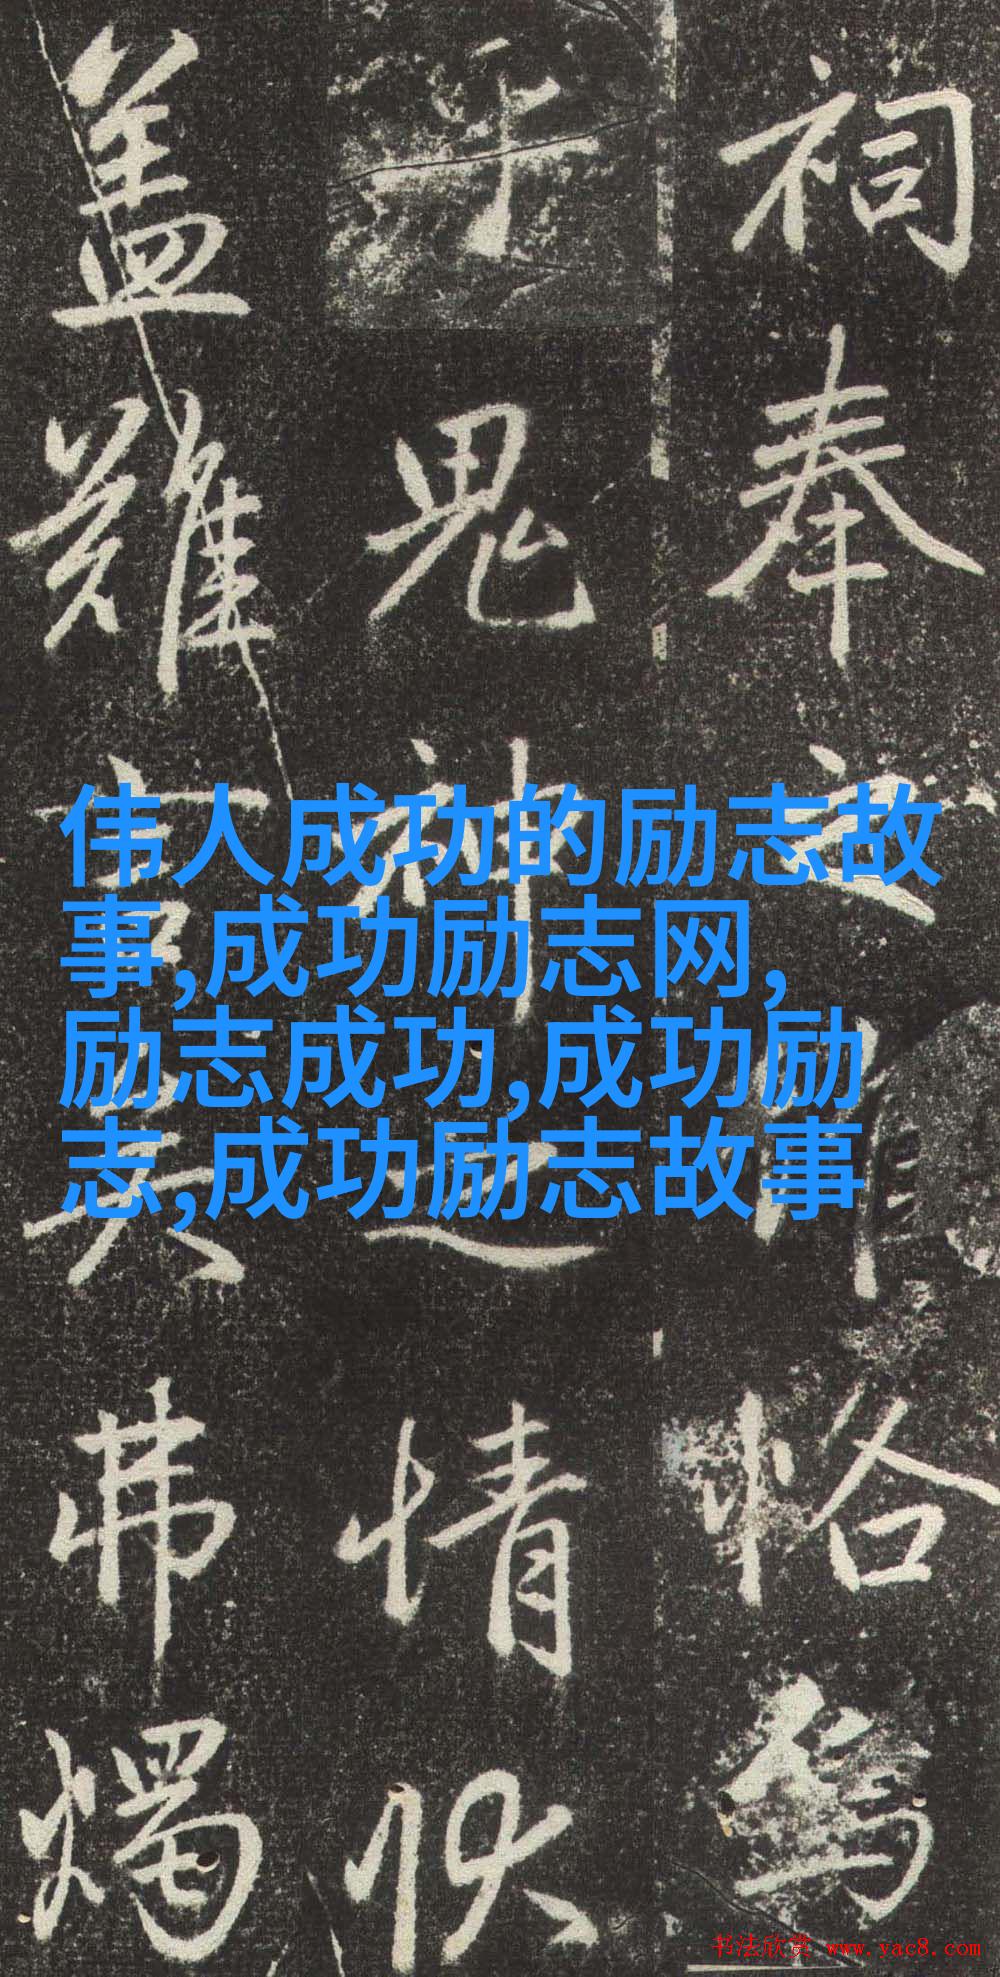 祠奉之恪焉
于鬼神之情状
盖難言矣弗燭
伟人成功的励志故
事,成功励志网,
励志成功,成功励
志,成功励志故事
书法欣赏 www.yac8.com